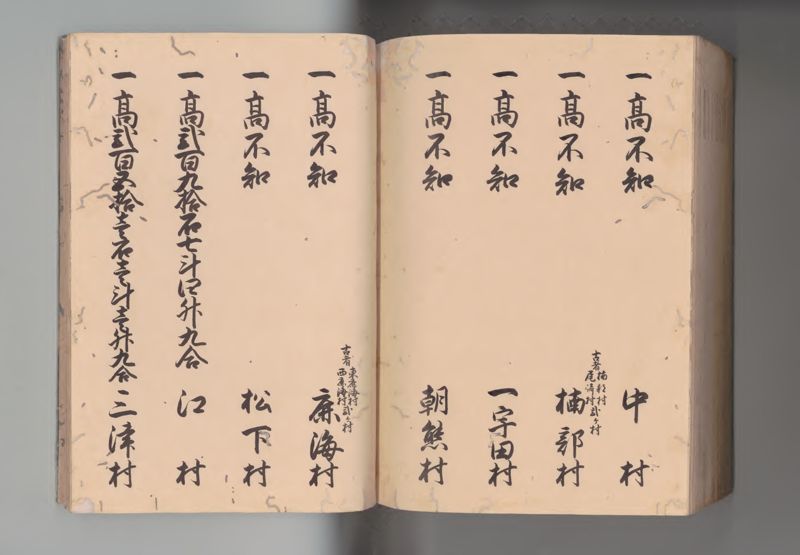 一高不知 中村
一高不知 楠部村
古者楠部村
尾崎村弐ヶ村
一高不知 一宇田村
一高不知 朝熊村
一高不知 鹿海村
古者東鹿海村
西鹿海村弐ヶ村
一高不知 松下村
一高弐百九拾石七斗四升九合 江村
一高弐百五拾壱石壱斗壱升九合 三津村